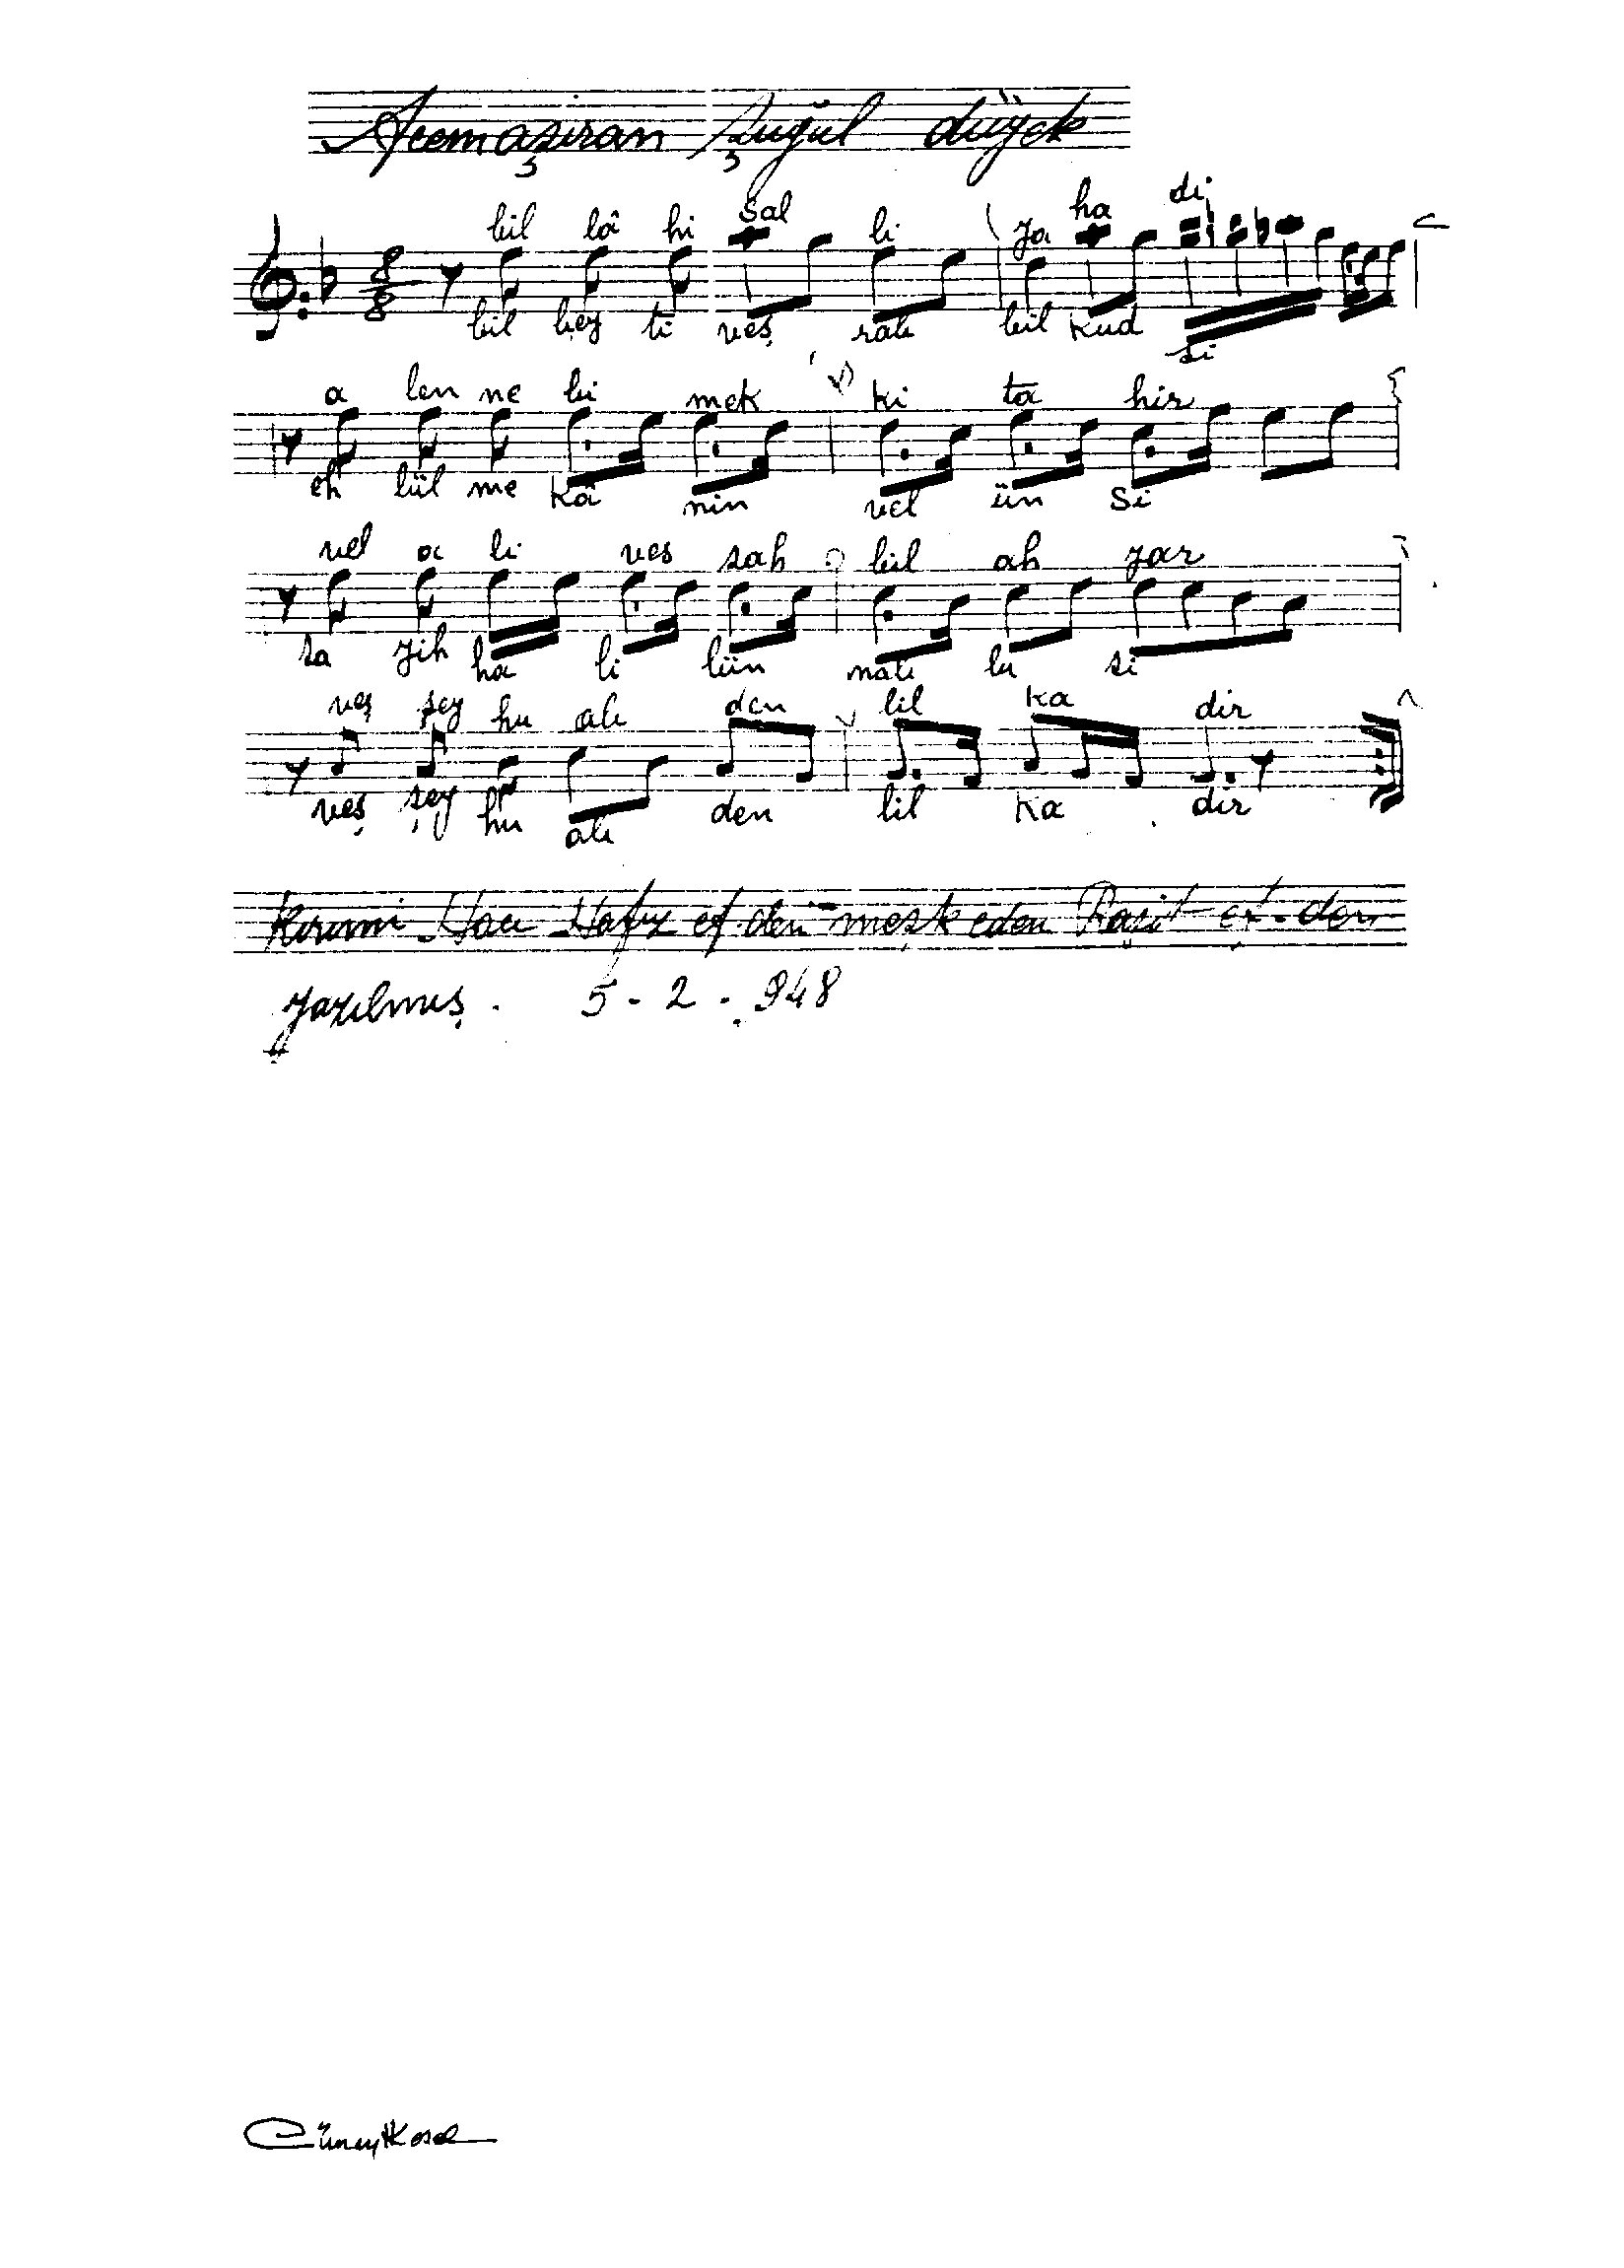 Acemaşıran Şuğul düyek
bil lâ hi sal li ya ha di
8 8
bil bey ti veş rab bil kud si
a len ne bi mek ki ta hir
eh lül me kâ nin vel ün si
vel a li ves sah bil ah yar
sa yih ha li lün nab lu si
veş şey hu ab den lil ka dir
veş şey hu ab den lil ka dir
Kırımi Hacı Hafız ef. den meşk eden Raşit ef. den
yazılmış. 5-2-948
Cüneyt Kosal